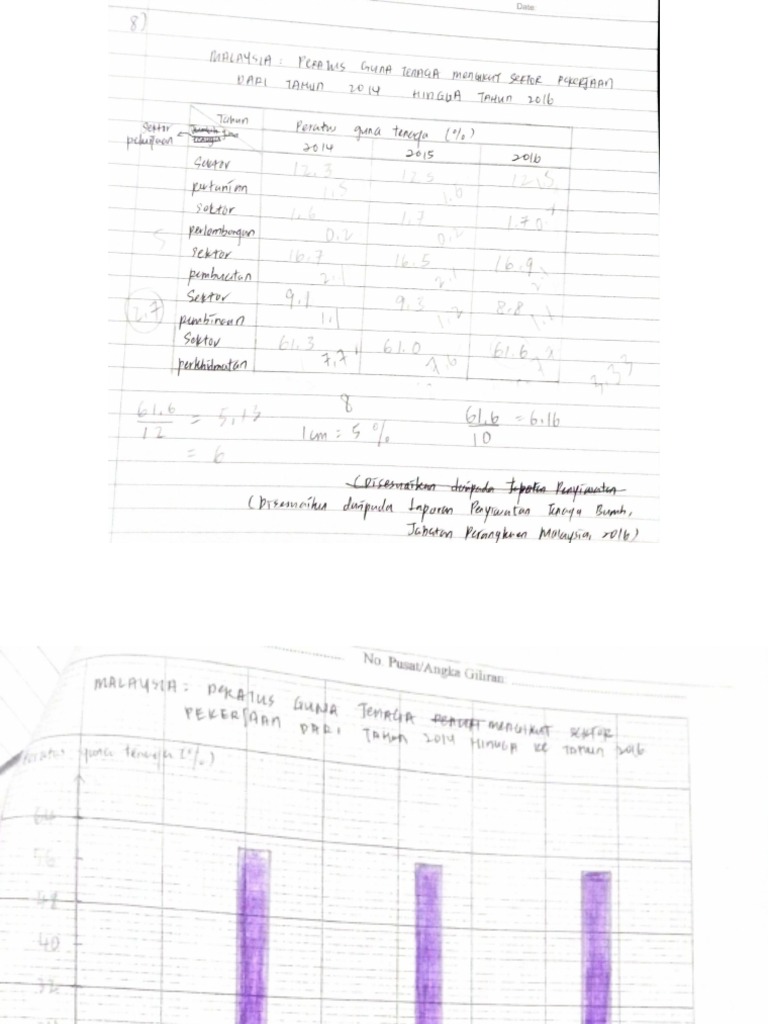 Date
8)
MALAYSIA : PERATUS GUNA TENAGA MENGIKUT SEKTOR PEKERJAAN
DARI TAHUN 2014 HINGGA TAHUN 2016
Tahun
Peratus guna tenaga (%)
Sektor
pekerjaan
2014 2015 2016
Sektor 12.3 12.5 12.5
pertanian 1.5 1.6
Sektor 1.6 1.7 1.70
perlombongan 0.2 0.2
Sektor 16.7 16.5 16.9
pembuatan 2.1 2.1 2.1
Sektor 9.1 9.3 8.8
2.7 pembinaan 1.1 1.2 1.1
Sektor 61.3 61.0 61.6
perkhidmatan 7.7
61.6 / 12 = 5.13
= 6
8
1cm = 5 %
61.6 / 10 = 6.16
(Disesuaikan daripada Laporan Penyiasatan
(Disesuaikan daripada Laporan Penyiasatan Tenaga Buruh,
Jabatan Perangkaan Malaysia, 2016)
No. Pusat/Angka Giliran
MALAYSIA : PERATUS GUNA TENAGA MENGIKUT SEKTOR
PEKERJAAN DARI TAHUN 2014 HINGGA KE TAHUN 2016
Peratus guna tenaga (%)
64
56
48
40
32